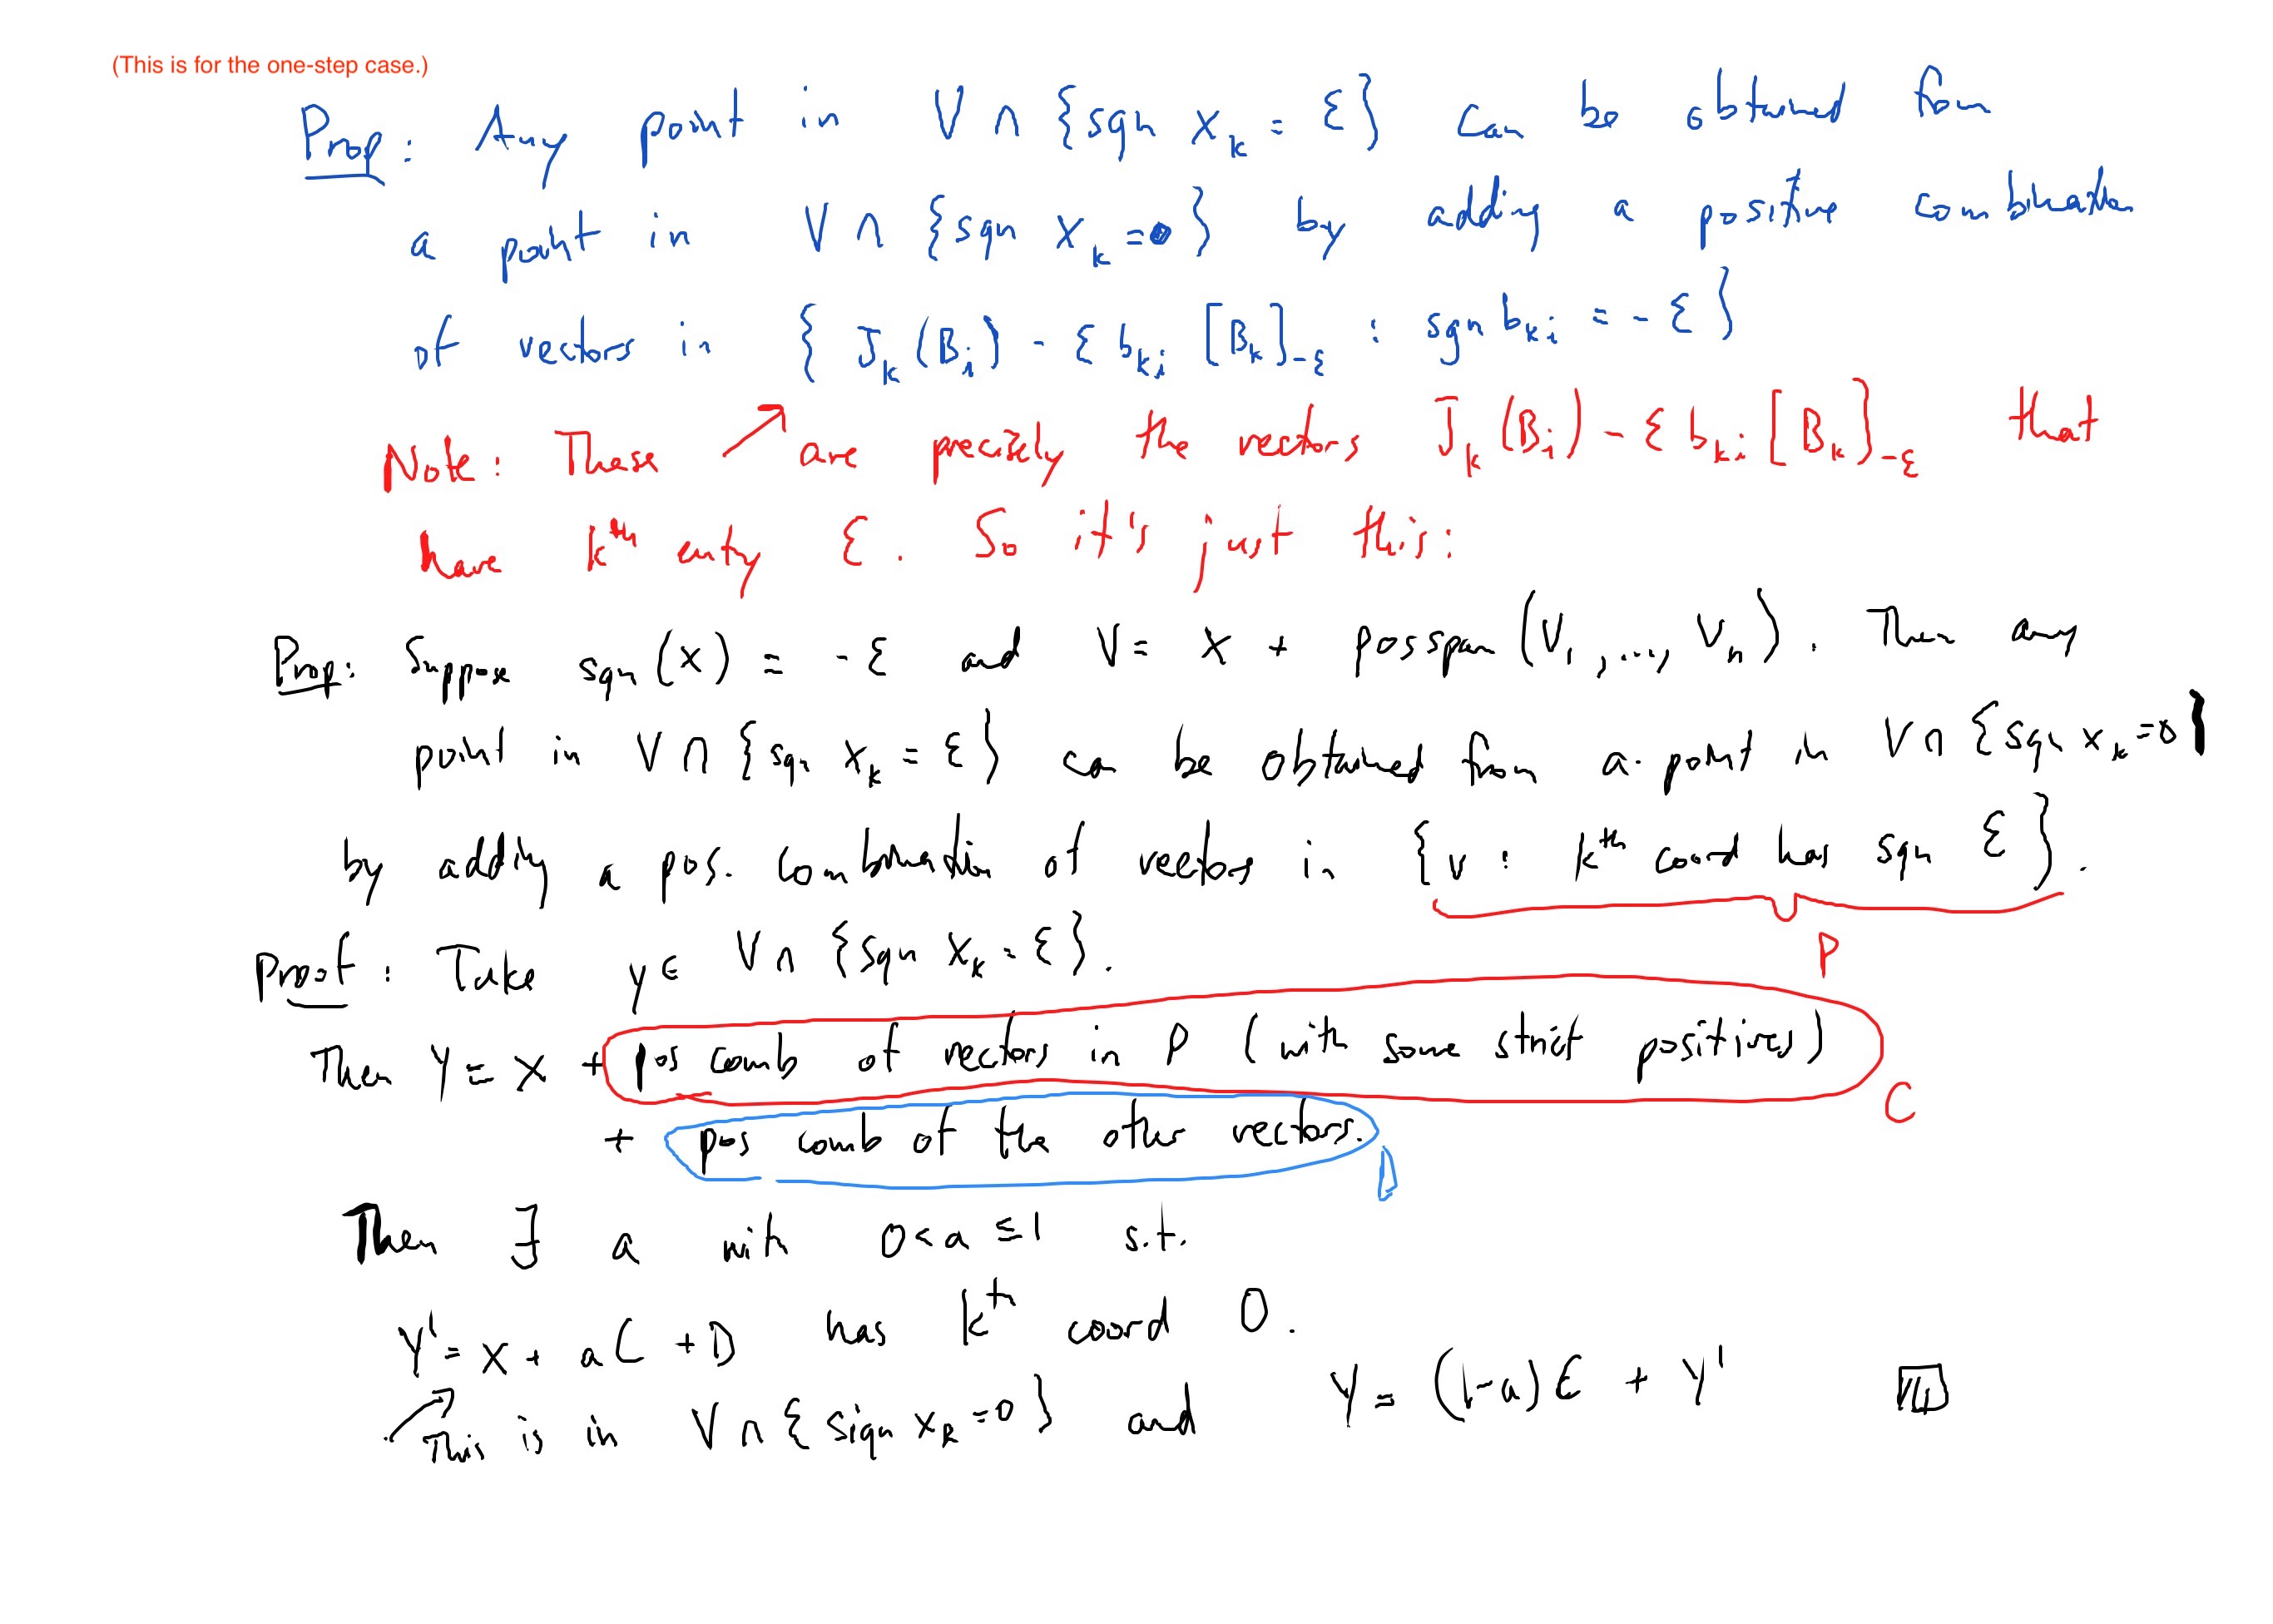 (This is for the one-step case.)
Prop: Any point in V ∩ {sgn x_k = ε} can be obtained from
a point in V ∩ {sgn x_k = 0} by adding a positive combination
of vectors in { J_k(B_i) - ε b_ki [B_k]_-ε : sgn b_ki = - ε }
Note: These ↗ are precisely the vectors J_k(B_i) - ε b_ki [B_k]_-ε that
have k^th entry ε. So it's just this:
Prop: Suppose sgn(x) = - ε and V = x + posspan(v_1, ..., v_n). Then any
point in V ∩ {sgn x_k = ε} can be obtained from a point in V ∩ {sgn x_k = 0}
by adding a pos. combination of vectors in {v : k^th coord has sgn ε}.
P
Proof: Take y ∈ V ∩ {sgn x_k = ε}.
Then y = x + pos comb of vectors in P (with some strict positives)
C
+ pos comb of the other vectors.
D
Then ∃ a with 0 < a ≤ 1 s.t.
y' = x + aC + D has k^th coord 0.
This is in V ∩ {sign x_k = 0} and y = (1-a)C + y'